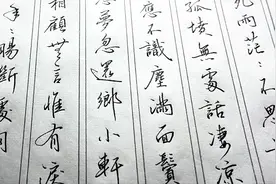 死兩茫〻不思
孤墳無處話淒涼
應不識塵滿面鬢
夢忽還鄉小軒
相顧無言惟有淚
年〻腸斷處